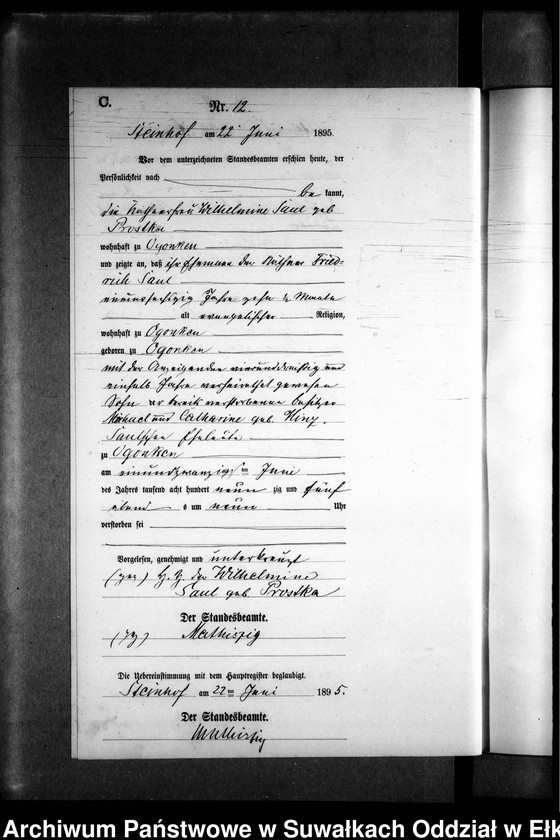 C.
Nr. 12.
Steinhof am 22 Juni 1895.
Vor dem unterzeichneten Standesbeamten erschien heute, der
Persönlichkeit nach
be kannt,
die Käthnerfrau Wilhelmine Saul geb
Prostka
wohnhaft zu Ogonken
und zeigte an, daß ihr Ehemann der Käthner Fried-
rich Saul
Jahre zehn Monate
alt evangelischer Religion,
wohnhaft zu Ogonken
geboren zu Ogonken
mit der Anzeigenden vierunddreißig und
einhalb Jahre verheirathet gewesen
Sohn der bereits verstorbenen Besitzer
Michael und Catharine geb.
Saulschen Eheleute
zu Ogonken
am einundzwanzigsten Juni
des Jahres tausend acht hundert neun zig und fünf
abend s um neun Uhr
verstorben sei
Vorgelesen, genehmigt und unterkreuzt
(gez) der Wilhelmine
Saul geb Prostka
Der Standesbeamte.
(gz) Mathiszig
Die Uebereinstimmung mit dem Hauptregister beglaubigt.
Steinhof am 22ten Juni 1895.
Der Standesbeamte.
Mathiszig
Archiwum Państwowe w Suwałkach Oddział w Ełk